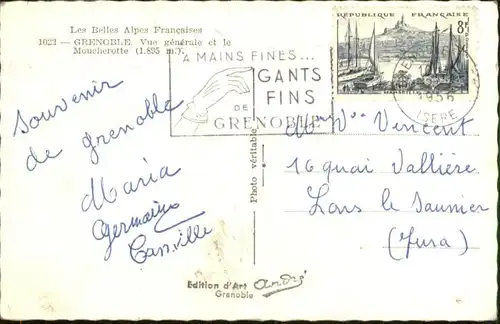 Les Belles Alpes Françaises
1022 — GRENOBLE. Vue générale et le
Moucherotte (1.895 m.).
A MAINS FINES...
GANTS
FINS
DE
GRENOBLE
RÉPUBLIQUE FRANÇAISE
8F
1956
ISERE
Souvenir
de grenoble
Maria
Germaine
Photo véritable
Vincent
16 quai Vallière
Lons le Saunier
(Jura)
Edition d'Art André
Grenoble